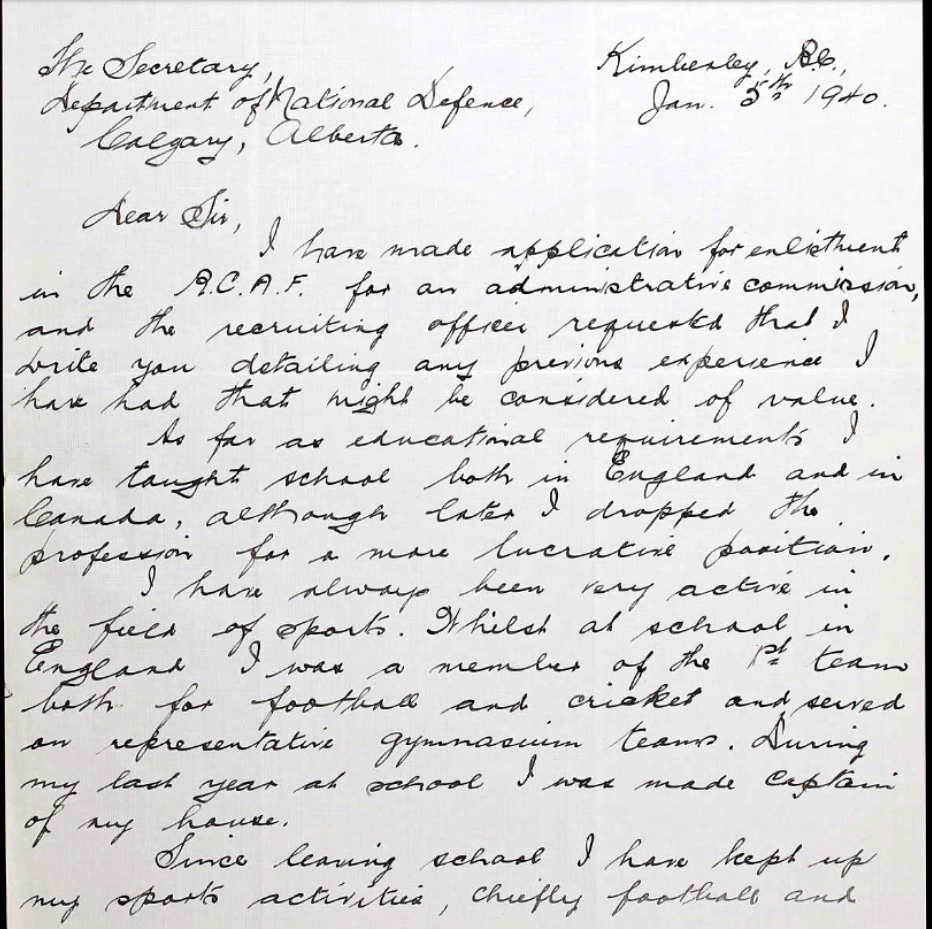 The Secretary,
Kimberley, B.C.,
Department of National Defence,
Jan. 5th 1940.
Calgary, Alberta.
Dear Sir,
I have made application for enlistment
in the R.C.A.F. for an administrative commission,
and the recruiting officer requested that I
write you detailing any previous experience I
have had that might be considered of value.
As far as educational requirements I
have taught school both in England and in
Canada, although later I dropped the
profession for a more lucrative position.
I have always been very active in
the field of sports. Whilst at school in
England I was a member of the 1st team
both for football and cricket and served
on representative gymnasium teams. During
my last year at school I was made captain
of my house.
Since leaving school I have kept up
my sports activities, chiefly football and